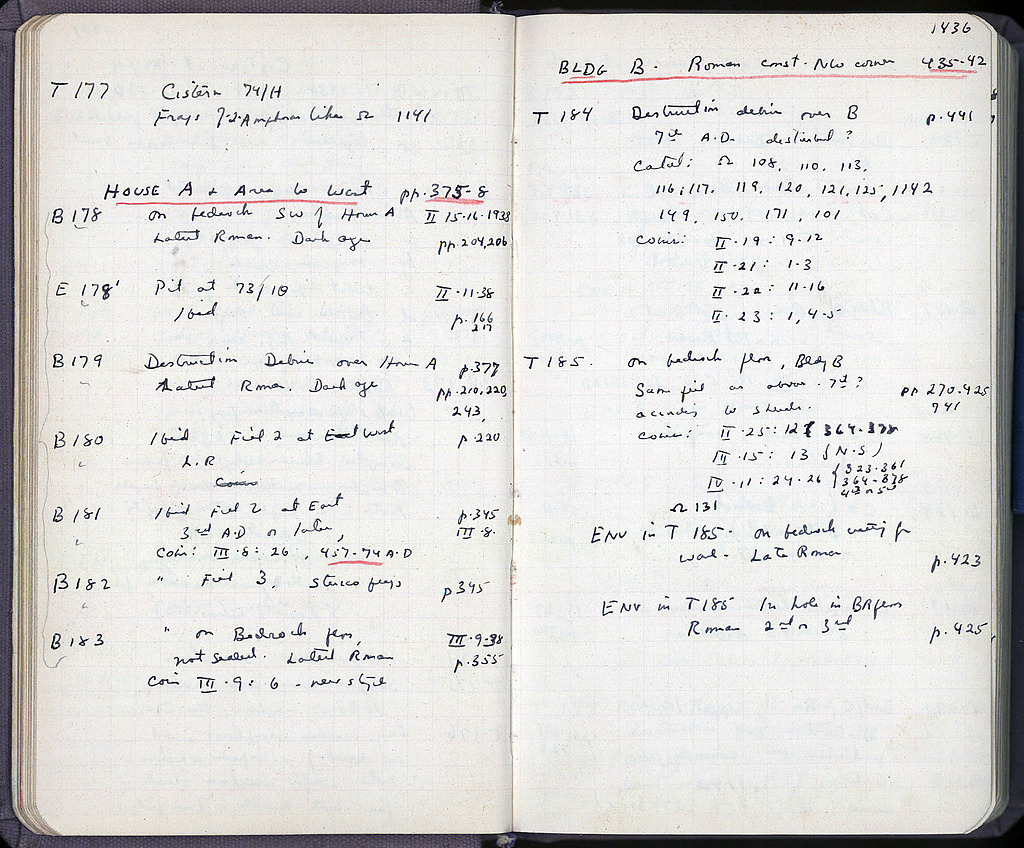 T 177 Cistern 74/H
Frags 7-2 Amphoras like Ω 1141
HOUSE A + Area to West pp. 375-8
B 178 on bedrock SW of House A II 15-16-1938
Latest Roman. Dark age pp. 204, 206
E 178' Pit at 73/18 II-11-38
Ibid p. 166
217
B 179 Destruction Debris over House A p. 377
Latest Roman. Dark age pp. 210, 220,
243,
B 180 Ibid Fill 2 at East West p. 220
" L.R
Coin
B 181 Ibid Fill 2 at East p. 345
" 3rd A.D or later, III-8-
Coin: III-8: 26, 457-74 A.D
B 182 " Fill 3, stucco frags p 345
"
B 183 " on Bedrock floor, III-9-38
not sealed. Latest Roman p. 355
Coin III-9: 6 - new style
1436
BLDG B. Roman const. NW corner 435-42
T 184 Destruction debris over B p. 441
7th A.D. disturbed?
Catal: Ω 108, 110, 113,
116, 117, 119, 120, 121, 125, 1142
149, 150, 171, 101
Coins: II-19: 9-12
II-21: 1-3
II-22: 11-16
II-23: 1, 4-5
T 185. on bedrock floor, Bldg B
Same fill as above. 7th? pp 270-425
according to sherds. 441
coins: II-25: 12 { 364-378
III-15: 13 (N.S)
IV-11: 24-26 { 323-361
364-378
4th or 5th
Ω 131
ENV in T 185. On bedrock cutting for
wall - Late Roman p. 423
ENV in T 185 In hole in BR floor
Roman 2nd or 3rd p. 425